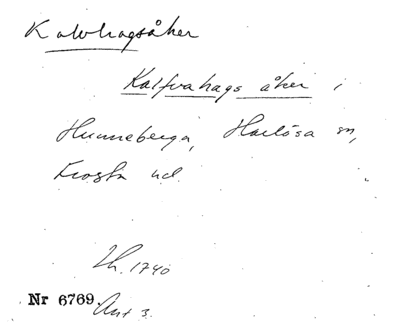 Kalvhagsåker
Kalfvahags åker i
Hunneberga, Harlösa sn,
Frosta hd.
Lh. 1740
Nr 6769. Akt 3.